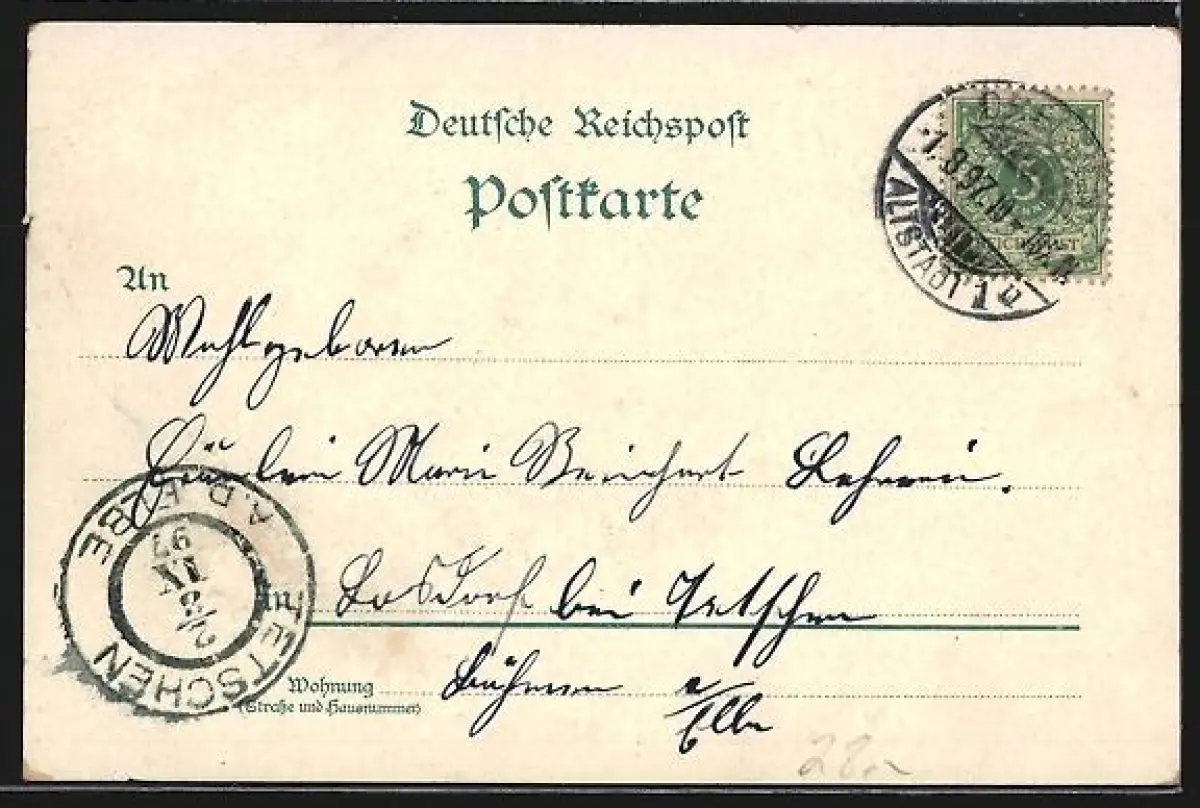 Deutsche Reichspost
Postkarte
1.9.97.10-
ALTSTADT 1 n
5
REICHSPOST
An
Wohlgeboren
Fräulein Marie Reichert
A.D. ELBE
TETSCHEN
2/9
IX
97
in Losdorf bei Tetschen
Wohnung Böhmen a/Elbe
(Straße und Hausnummer)
22.-